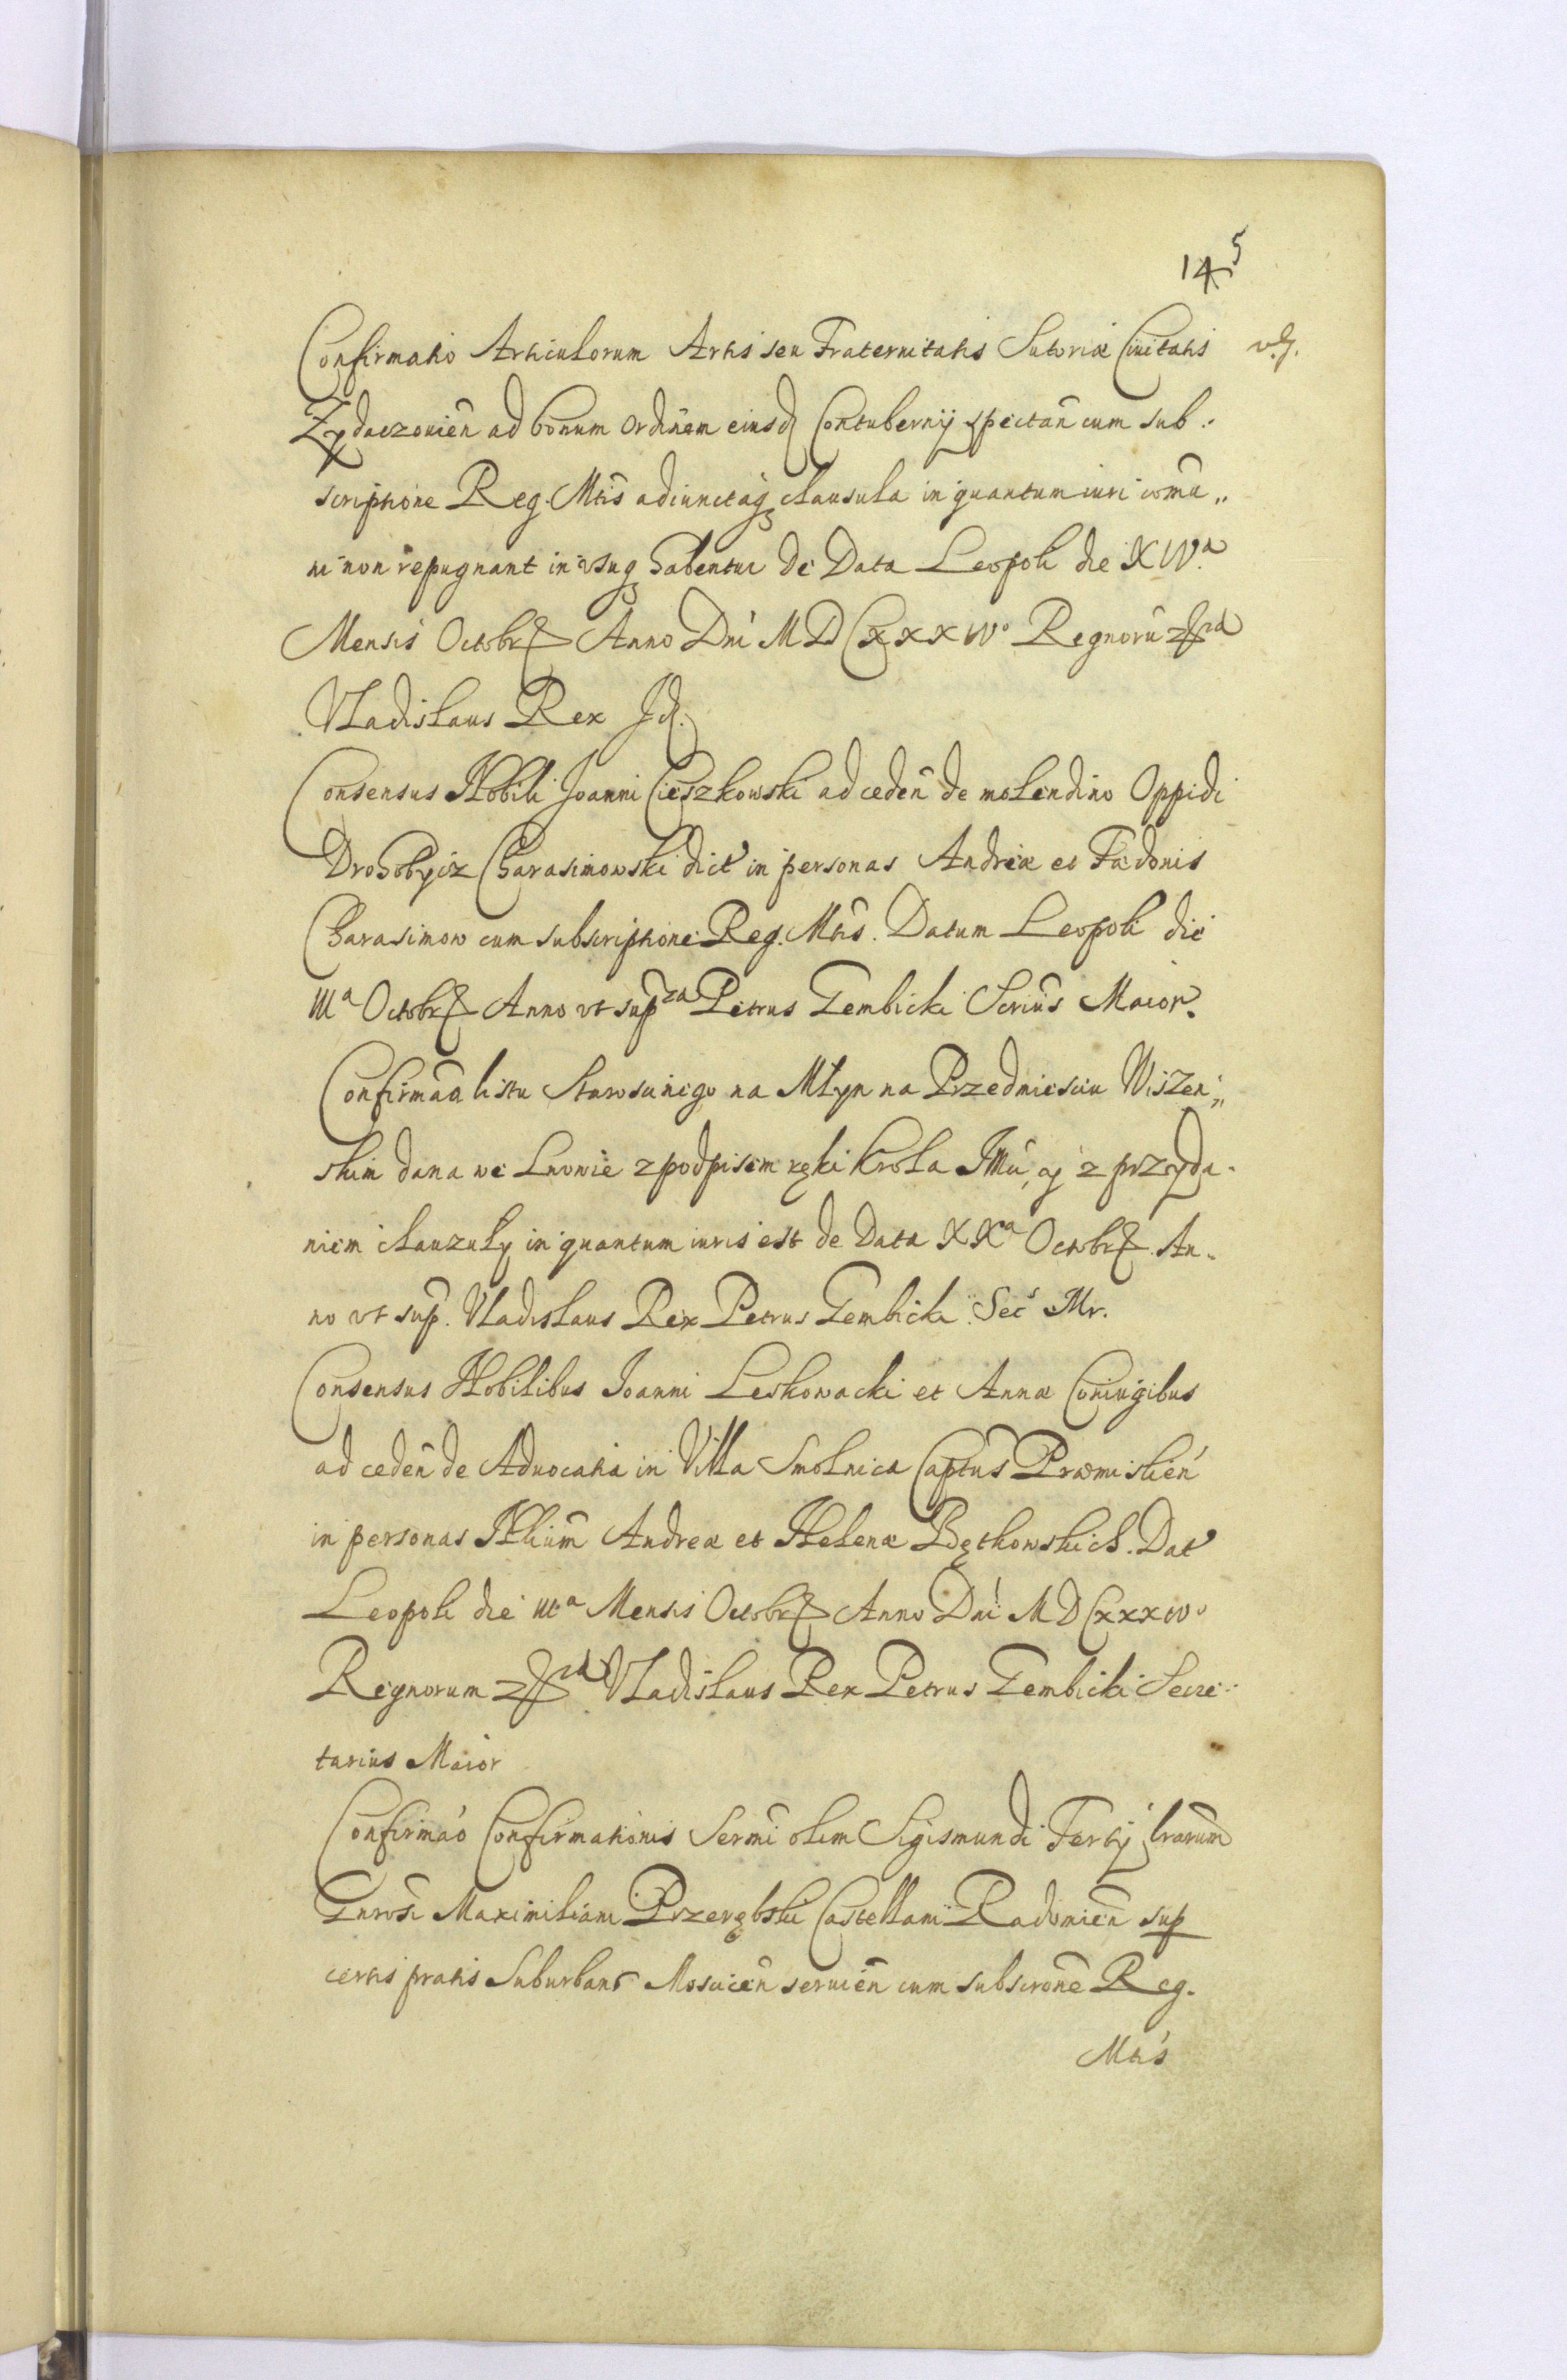 145
Confirmatio Articulorum Artis seu Fraternitatis Sutoriæ Ciuitatis
Zydaczouień ad bonum ordinem eiusd Contubernij spectań cum sub:
scriptione Reg. Mtis adiunctaq clausula in quantum iuri comu„
ni non repugnant in usuq habentur de Data Leopoli die XIV.a
Mensis Octobr Anno Dni MDCXXXIVo Regnorũ
Vladislaus Rex
Consensus Nobili Joanni Cieszkowski ad cedeń de molendino Oppidi
Drohobycz Charasimowski dict in personas Andreæ et Fædonis
Charasimow cum subscriptione Reg. Mtis. Datum Leopoli die
IIIa Octobr Anno vt supra Petrus Gembicki Scrius Maior.
Confirmãa listu Starosciniego na Młyn na Przedmiesciu Wiszeń„
skim dana we Lwowie z podpisem ręki Krola JMći, y z przyda-
niem clauzuly in quantum iuris est de Data XXa Octobr An-
no vt sup. Vladislaus Rex Petrus Gembicki Sec Mr.
Consensus Nobilibus Joanni Leskowacki et Annæ Coniugibus
ad cedeń de Aduocatia in Villa Smolnica Captus Præmislień
in personas Nbilium Andreæ et Helenæ Bętkowskich. Dat
Leopoli die IIIa Mensis Octobr Anno Dni MDCXXXIVo
Regnorum Vladislaus Rex Petrus Gembicki Secre:
tarius Maior
Confirmão Confirmationis Sermi olim Sigismundi Tertij lrarum
Gnrosi Maximiliani Przerębski Castellani Radomień sup
certis pratis Suburbans Moscicen seruień cum subscrone Reg.
Mtis